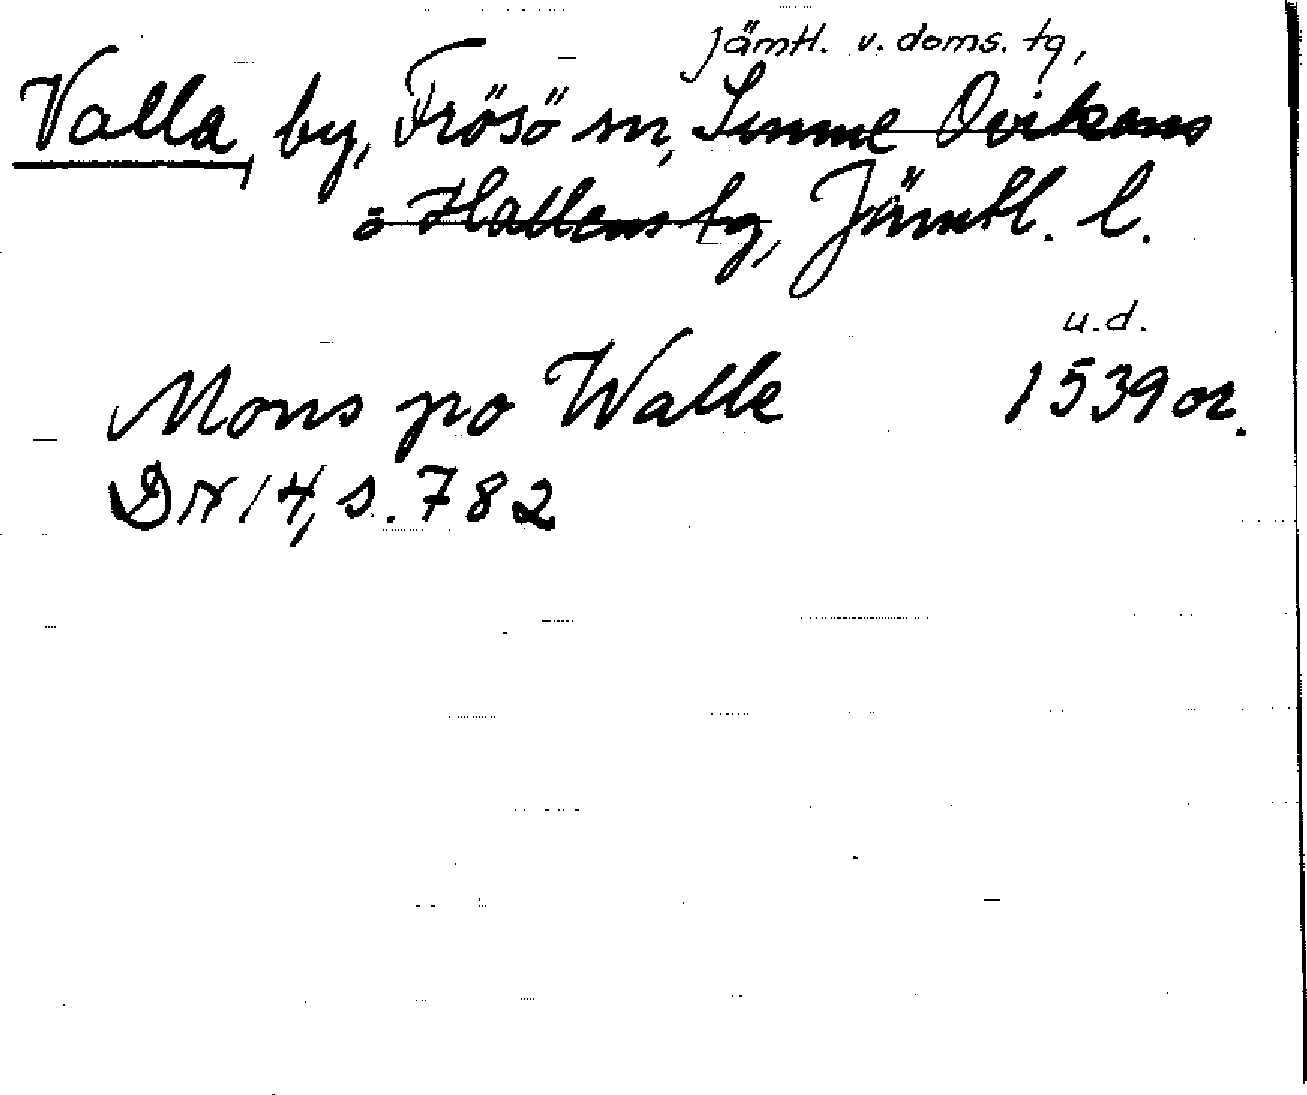 Jämtl. v. doms. tg,
Valla, by, Frösö sn, Sunne Ovikens
o Hallens tg, Jämtl. l.
u.d.
Mons po Walle 1539 or.
DN 14, s. 782